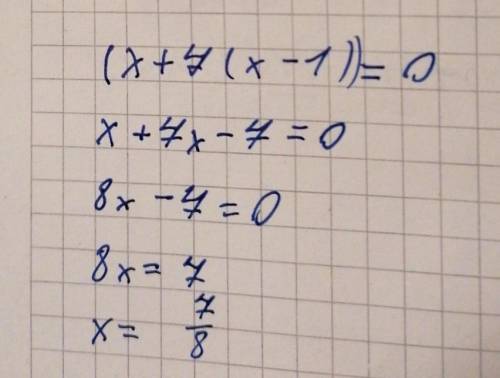 (x+7(x-1))=0
x+7x-7=0
8x-7=0
8x=7
x= 7/8